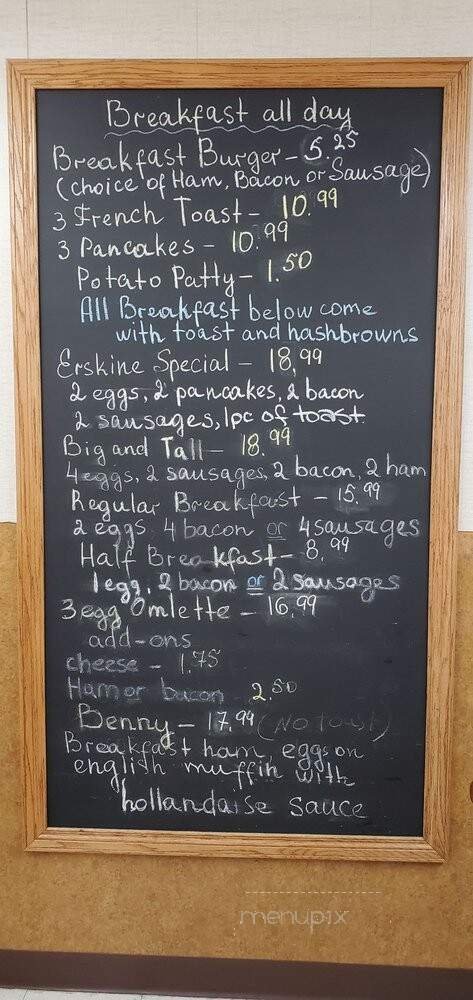 Breakfast all day
Breakfast Burger - 5.25
(choice of Ham, Bacon or Sausage)
3 French Toast - 10.99
3 Pancakes - 10.99
Potato Patty - 1.50
All Breakfast below come
with toast and hashbrowns
Erskine Special - 18.99
2 eggs, 2 pancakes, 2 bacon
2 sausages, 1pc of toast
Big and Tall - 18.99
4 eggs, 2 sausages, 2 bacon, 2 ham
Regular Breakfast - 15.99
2 eggs 4 bacon or 4 sausages
Half Breakfast - 8.99
1 egg, 2 bacon or 2 sausages
3 egg Omlette - 16.99
add-ons
cheese - 1.75
Ham or bacon 2.50
Benny - 17.99 (No toast)
Breakfast ham, eggs on
english muffin with
hollandaise sauce
menupix